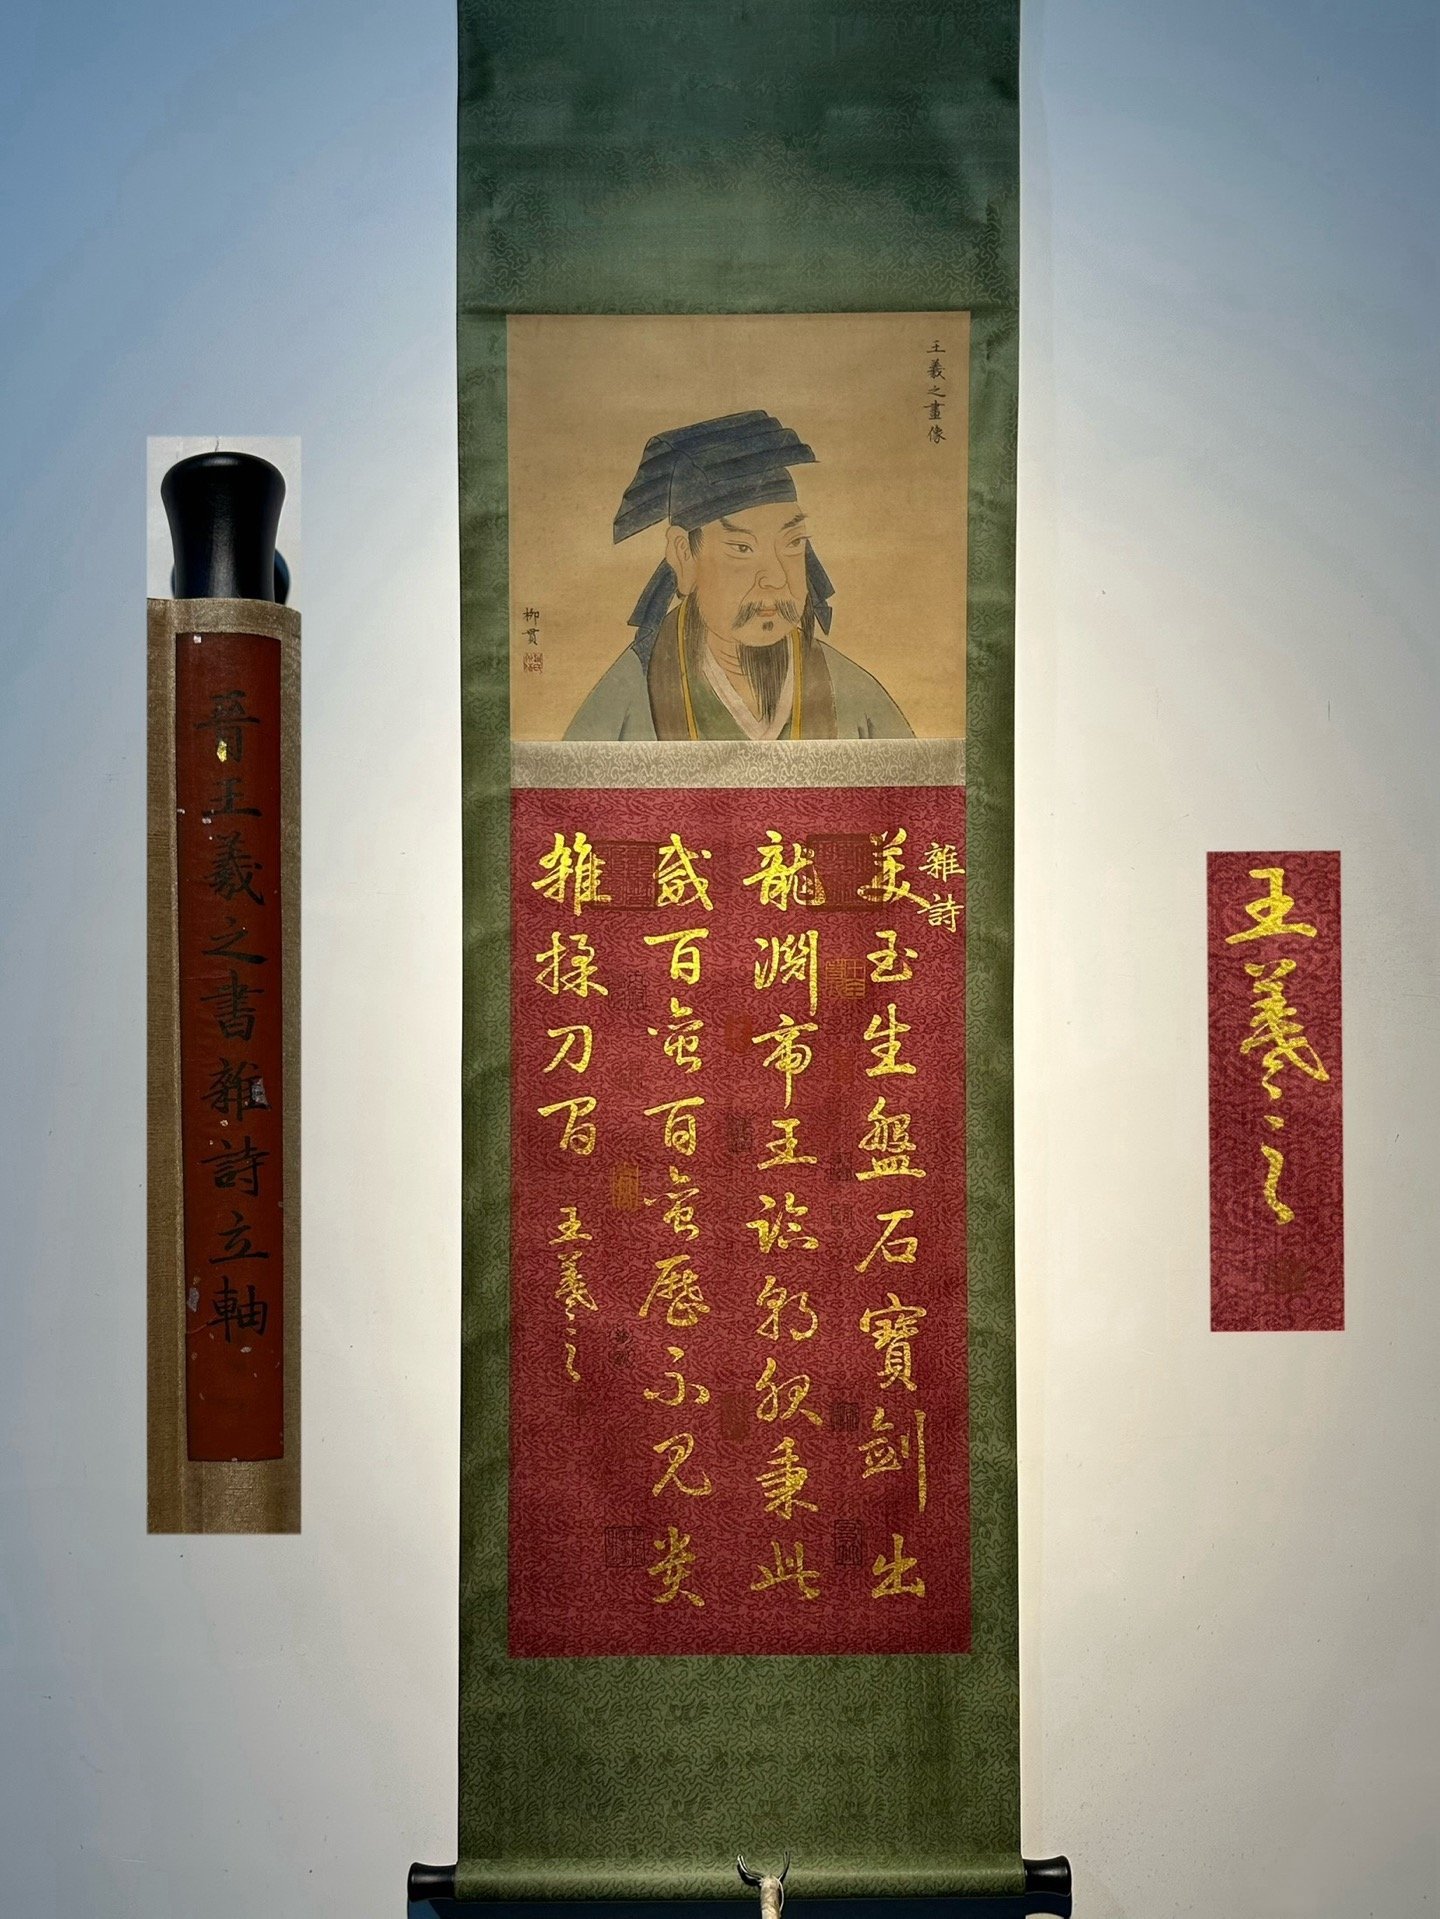 王羲之畫像
柳貫
雜詩
美玉生盤石寶劍出
龍淵帝王臨朝服秉此
威百蛮百蛮歷不見贵
雜揉刀
王羲之
晉王羲之書雜詩立軸
王羲之